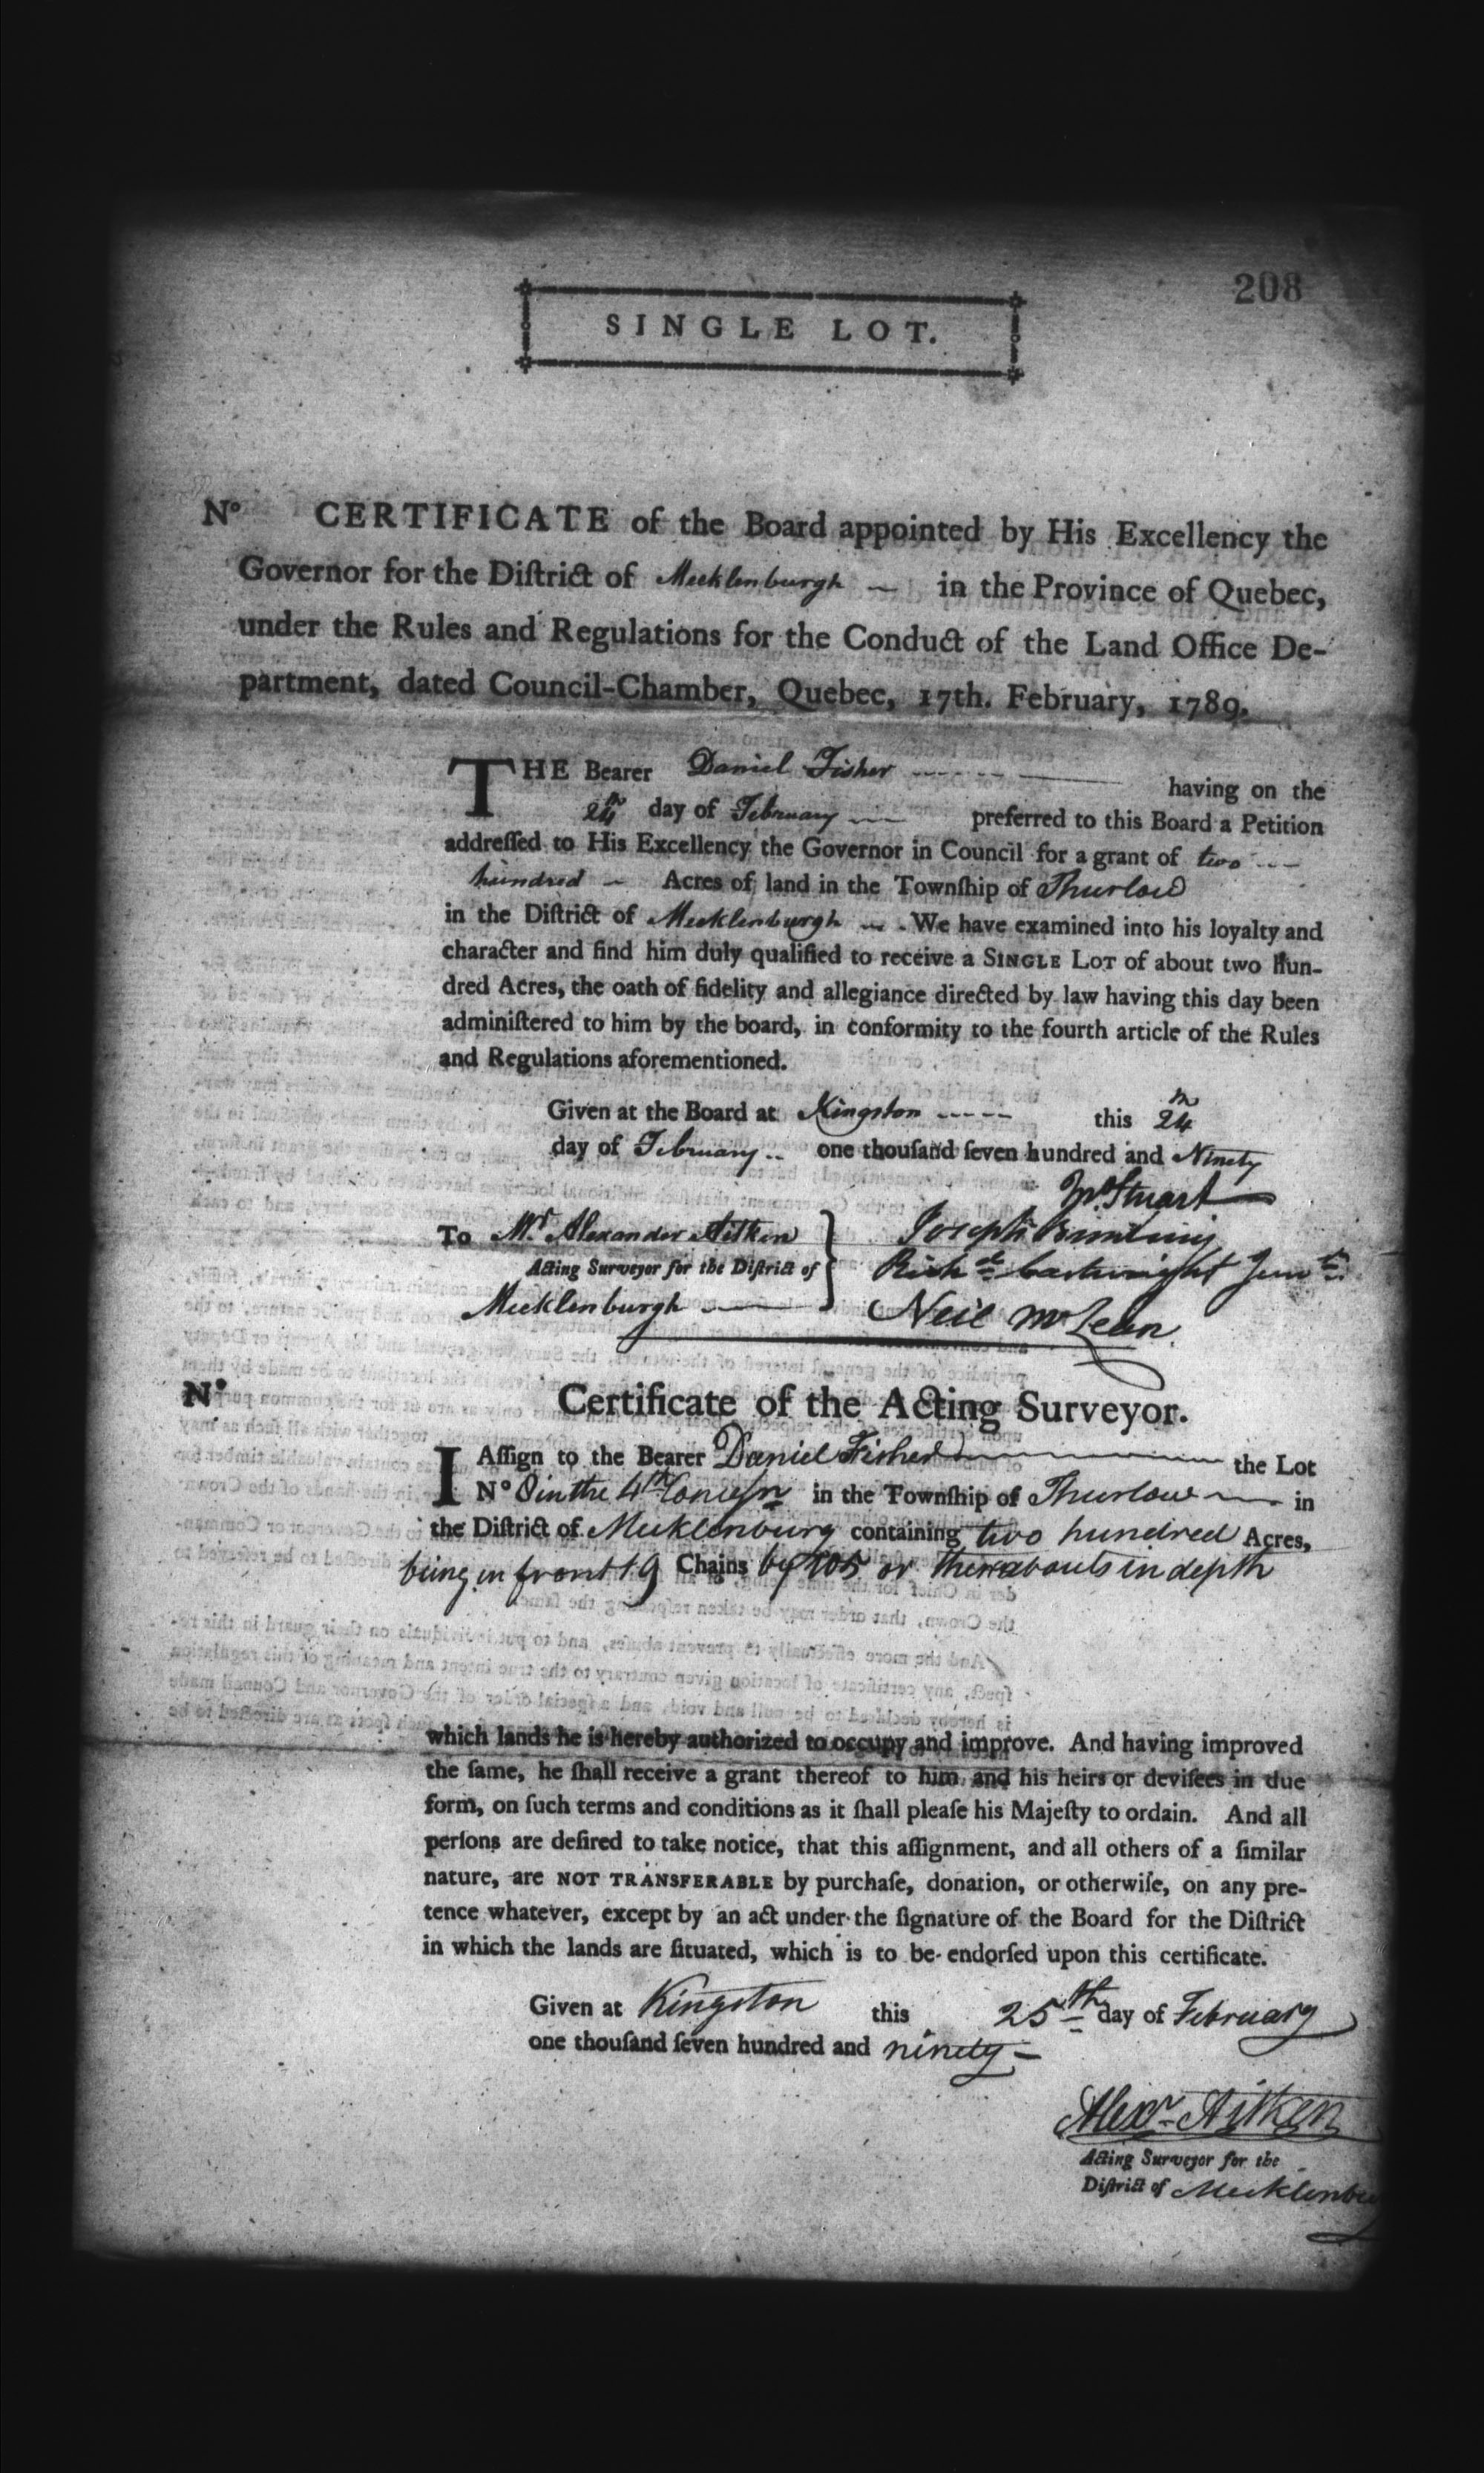 208
SINGLE LOT.
No CERTIFICATE of the Board appointed by His Excellency the
Governor for the Diſtrict of Mecklenburgh — in the Province of Quebec,
under the Rules and Regulations for the Conduct of the Land Office De-
partment, dated Council-Chamber, Quebec, 17th. February, 1789.
THE Bearer Daniel Fisher having on the
24th day of February preferred to this Board a Petition
addreſſed to His Excellency the Governor in Council for a grant of two
hundred Acres of land in the Townſhip of Thurlow
in the Diſtrict of Mecklenburgh — . We have examined into his loyalty and
character and find him duly qualified to receive a SINGLE LOT of about two Hun-
dred Acres, the oath of fidelity and allegiance directed by law having this day been
adminiſtered to him by the board, in conformity to the fourth article of the Rules
and Regulations aforementioned.
Given at the Board at Kingston this 24th
day of February one thouſand ſeven hundred and Ninety
To Mr. Alexander Aitken
Acting Surveyor for the Diſtrict of
Mecklenburgh
Stuart
Joseph
Richd Cartwright Junr
Neil McLean
No Certificate of the Acting Surveyor.
I Aſſign to the Bearer Daniel Fisher the Lot
No in the 4th Conceſsn in the Townſhip of Thurlow in
the Diſtrict of Mecklenburg containing two hundred Acres,
being in front 19 Chains by 105 or thereabouts in depth
which lands he is hereby authorized to occupy and improve. And having improved
the ſame, he ſhall receive a grant thereof to him and his heirs or deviſees in due
form, on ſuch terms and conditions as it ſhall pleaſe his Majeſty to ordain. And all
perſons are deſired to take notice, that this aſſignment, and all others of a ſimilar
nature, are NOT TRANSFERABLE by purchaſe, donation, or otherwiſe, on any pre-
tence whatever, except by an act under the ſignature of the Board for the Diſtrict
in which the lands are ſituated, which is to be endorſed upon this certificate.
Given at Kingston this 25th day of February
one thouſand ſeven hundred and ninety —
Alexr Aitken
Acting Surveyor for the
Diſtrict of Mecklenbu